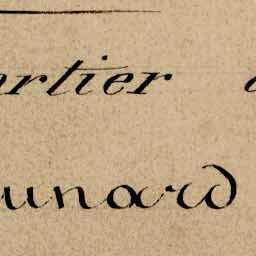 artier
unard